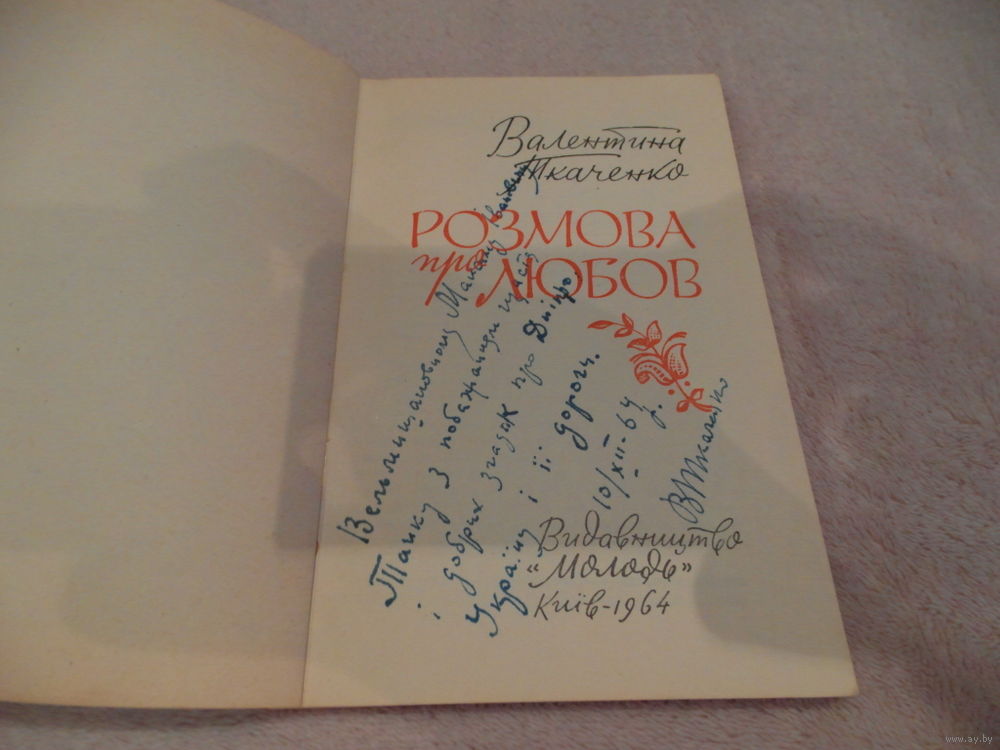 Валентина
Ткаченко
РОЗМОВА
про ЛЮБОВ
Вельмишановному Максиму Івановичу
Танку з побажанням щастя
і добрих згадок про Дніпро,
Україну і її дороги.
10/XII-64 р.
ВТкаченко
Видавництво
"Молодь"
Київ-1964
www.ay.by